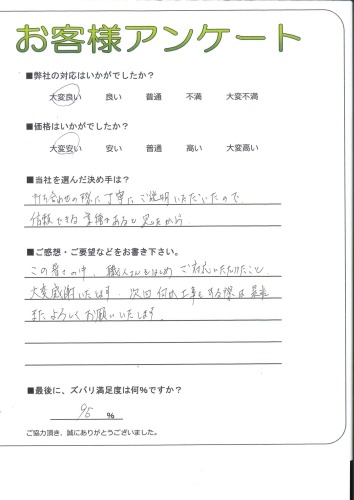 お客様アンケート
■弊社の対応はいかがでしたか？
大変良い 良い 普通 不満 大変不満
■価格はいかがでしたか？
大変安い 安い 普通 高い 大変高い
■当社を選んだ決め手は？
打ち合わせの際に丁寧にご説明いただいたので
信頼できる業者であると思たから
■ご感想・ご要望などをお書き下さい。
この暑さの中、職人さんをはじめ ご対応いただけたこと
大変感謝いたします。次回 何か工事をする際は是非
またよろしくお願いいたします。
■最後に、ズバリ満足度は何％ですか？
95 ％
ご協力頂き、誠にありがとうございました。